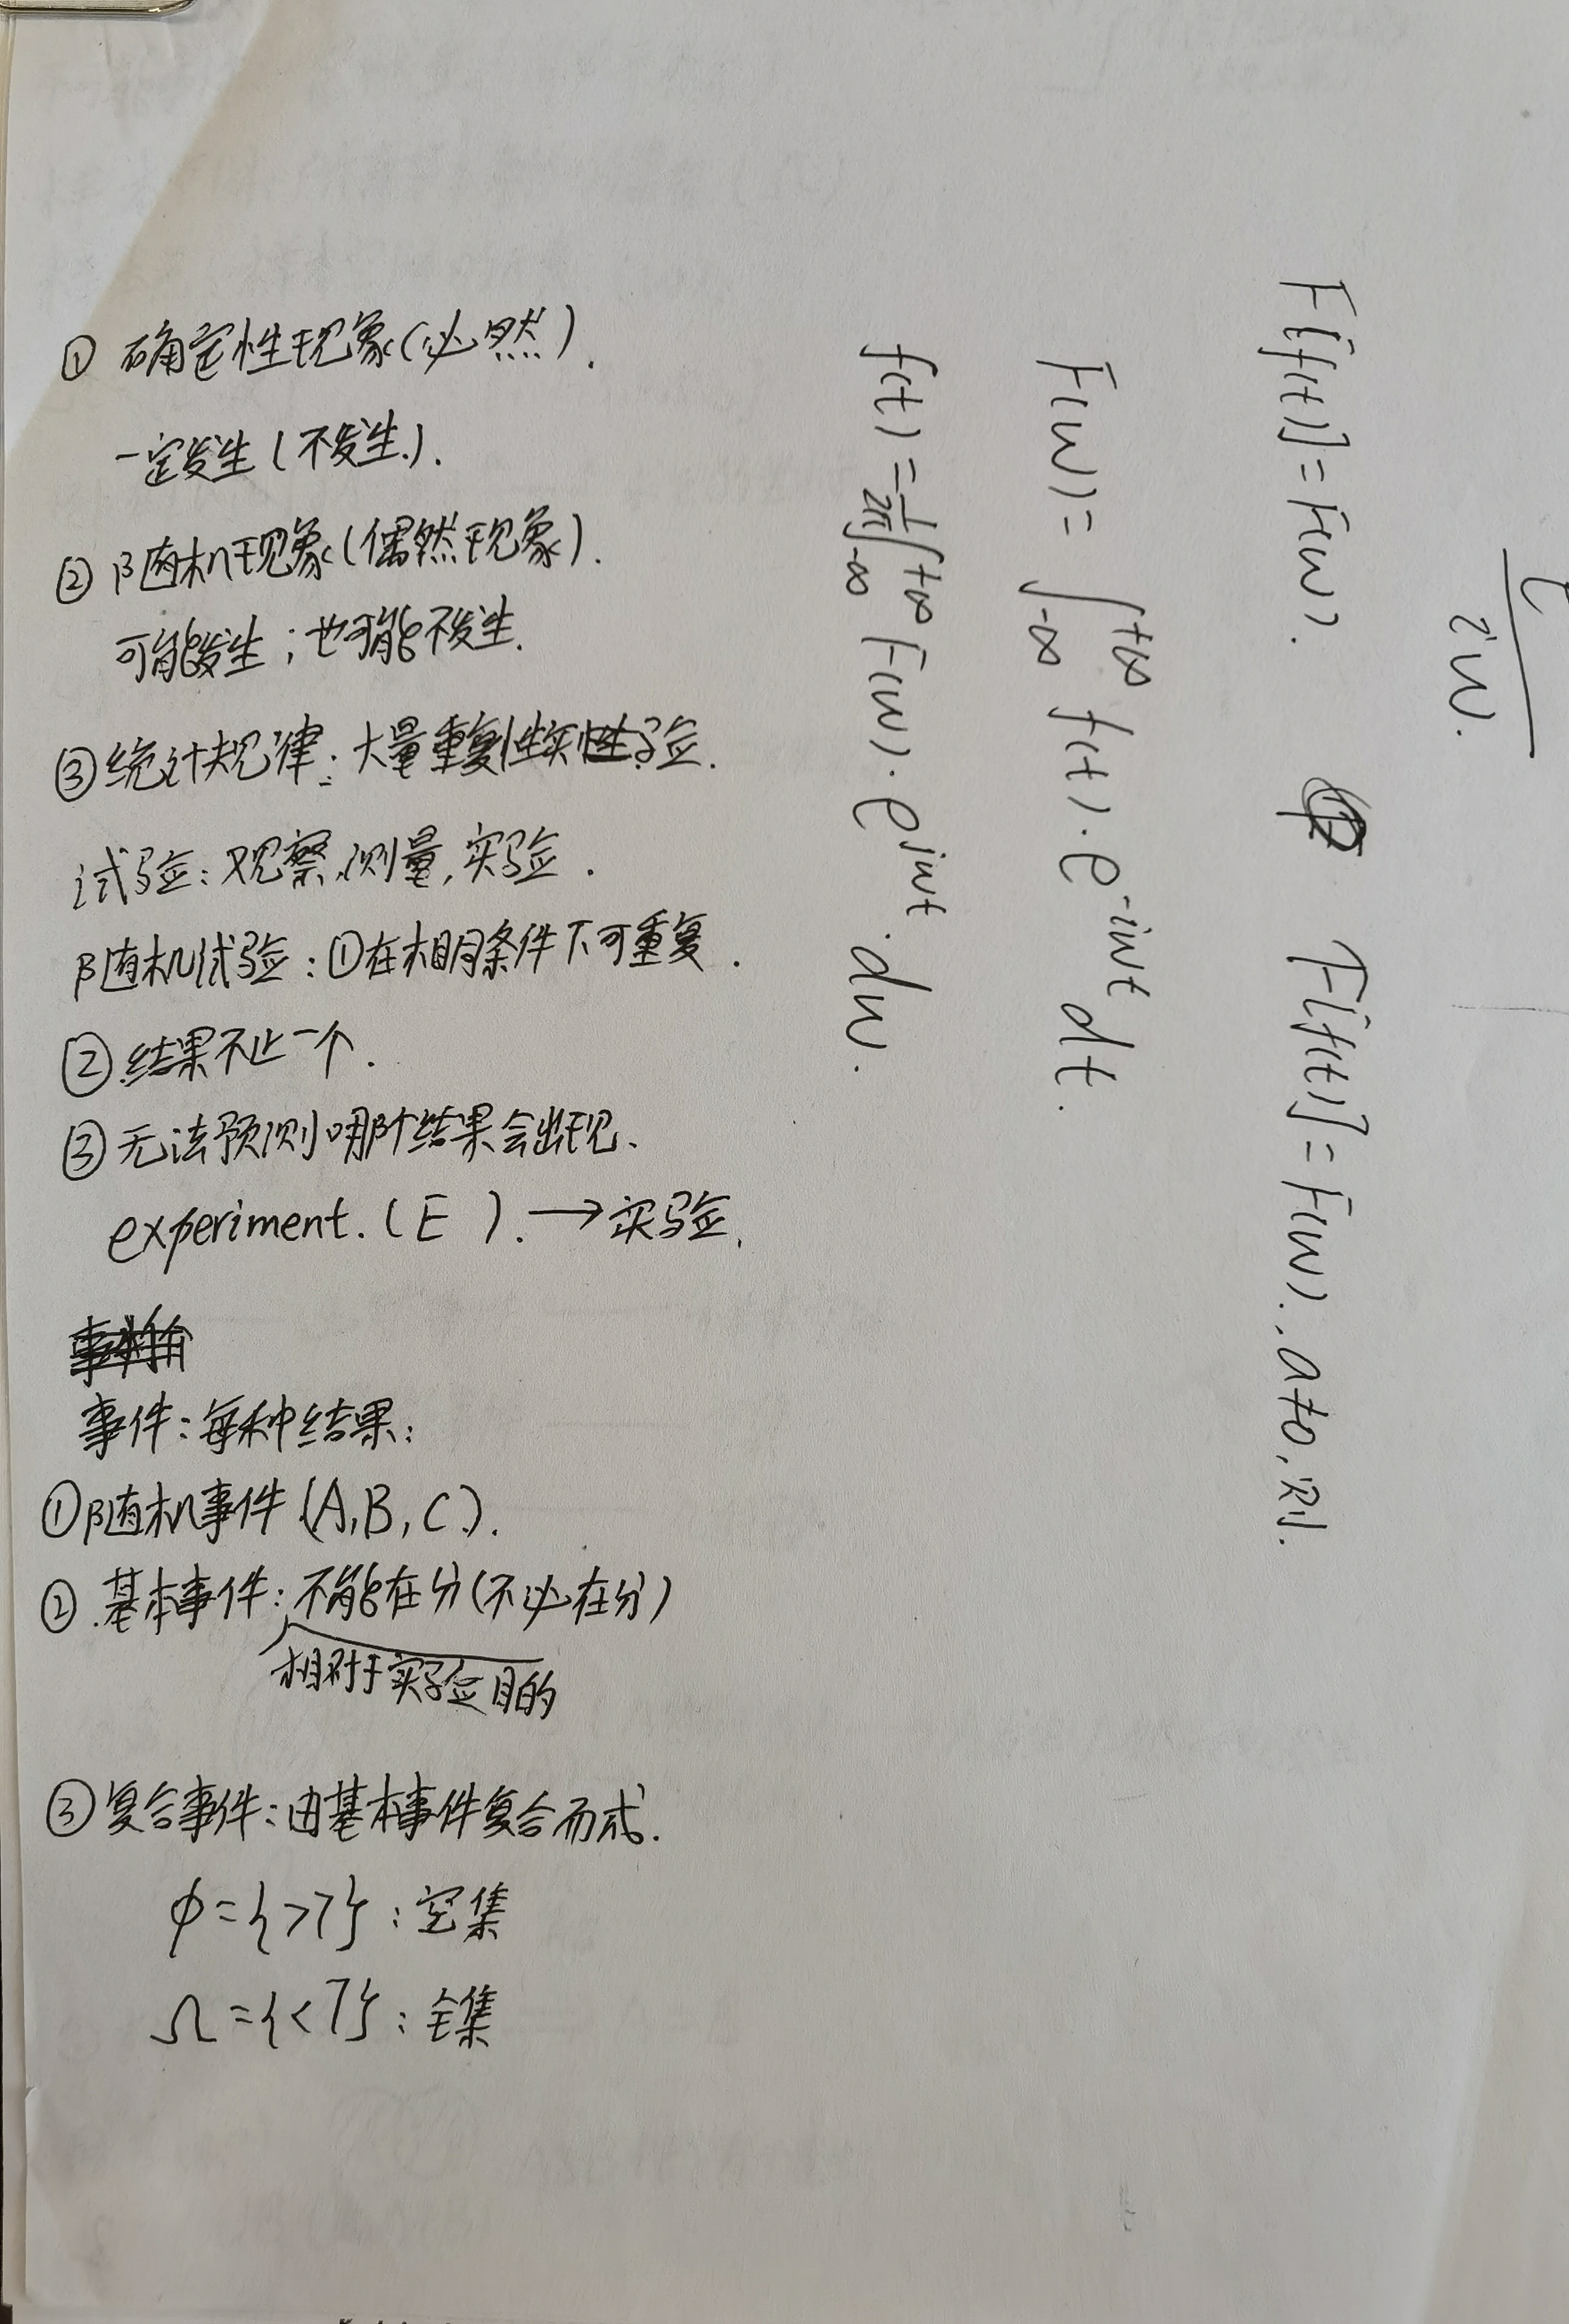 ① 确定性现象(必然).
一定发生(不发生).
② 随机现象(偶然现象).
可能发生;也可能不发生.
③统计规律:大量重复性实验.
试验:观察,测量,实验.
随机试验:①在相同条件下可重复.
②结果不止一个.
③无法预测哪个结果会出现.
experiment.(E).→实验.
事件:每种结果:
①随机事件(A,B,C).
②.基本事件:不能在分(不必在分)
相对于实验目的
③复合事件:由基本事件复合而成.
φ={>7}:空集
Ω={<7}:全集
iw.
F[f(t)]=F(w). F[f(t)]=F(w).,a≠0,则.
F(w)=∫_{-∞}^{+∞} f(t)·e^{-iwt} dt.
f(t)=1/2π ∫_{-∞}^{+∞} F(w)·e^{iwt}·dw.